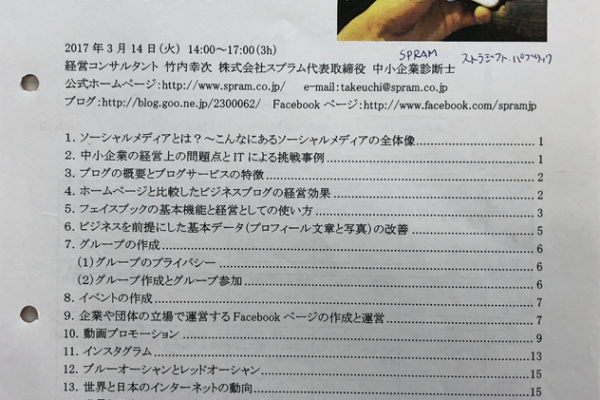 2017年3月14日(火) 14:00～17:00(3h)
SPRAM
経営コンサルタント 竹内幸次 株式会社スプラム代表取締役 中小企業診断士
公式ホームページ:http://www.spram.co.jp/ e-mail:takeuchi@spram.co.jp
ブログ:http://blog.goo.ne.jp/2300062/ Facebookページ:http://www.facebook.com/spramjp
1. ソーシャルメディアとは？～こんなにあるソーシャルメディアの全体像 1
2. 中小企業の経営上の問題点とITによる挑戦事例 1
3. ブログの概要とブログサービスの特徴 2
4. ホームページと比較したビジネスブログの経営効果 2
5. フェイスブックの基本機能と経営としての使い方 3
6. ビジネスを前提にした基本データ(プロフィール文章と写真)の改善 5
7. グループの作成 6
(1)グループのプライバシー 6
(2)グループ作成とグループ参加 6
8. イベントの作成 7
9. 企業や団体の立場で運営するFacebookページの作成と運営 7
10. 動画プロモーション 9
11. インスタグラム 13
12. ブルーオーシャンとレッドオーシャン 15
13. 世界と日本のインターネットの動向 15